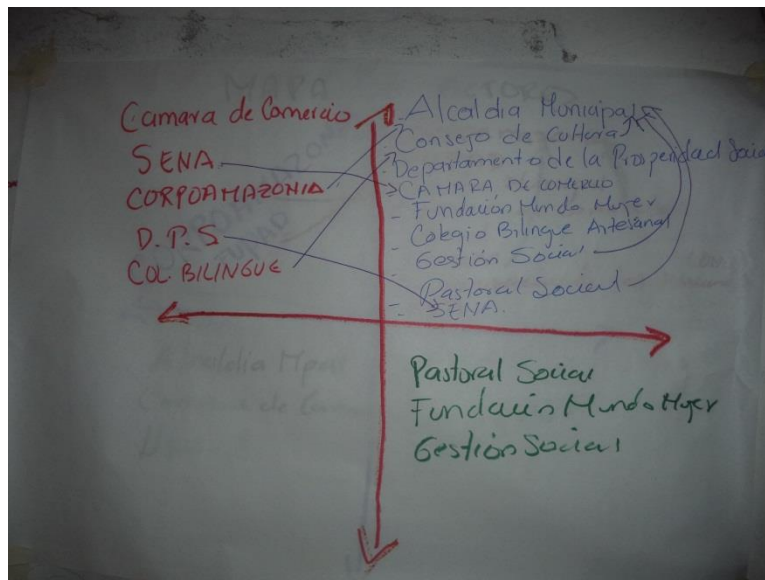 Camara de Comercio
SENA
CORPOAMAZONIA
D.P.S
COL. BILINGUE
- Alcaldia Municipal
- Consejo de Cultura
- Departamento de la Prosperidad Social
- CÁMARA DE COMERCIO
- Fundación Mundo Mujer
- Colegio Bilingue Artesanal
- Gestión Social
- Pastoral Social
- SENA.
Pastoral Social
Fundación Mundo Mujer
Gestión Social
MAPA
Alcaldia Mpal